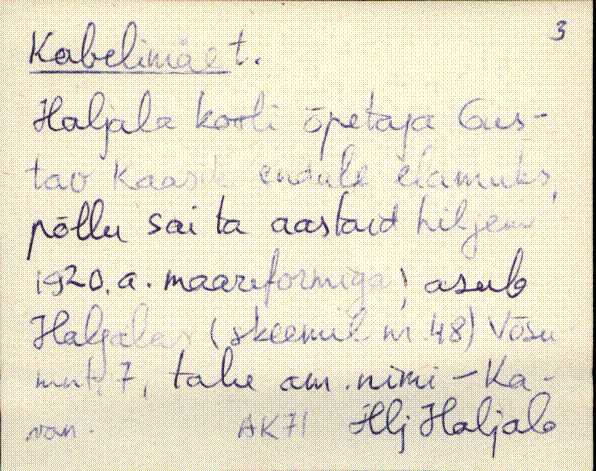 3
Kabelimäe t.
Haljala kooli õpetaja Gus-
tav Kaasik endale elamuks,
põllu sai ta aastaid hiljem
1920. a. maareformiga; asub
Haljalas (skeemil nr. 48) Võsu
mnt. 7, talu am. nimi - Ka-
van. AK71 Hlj Haljala